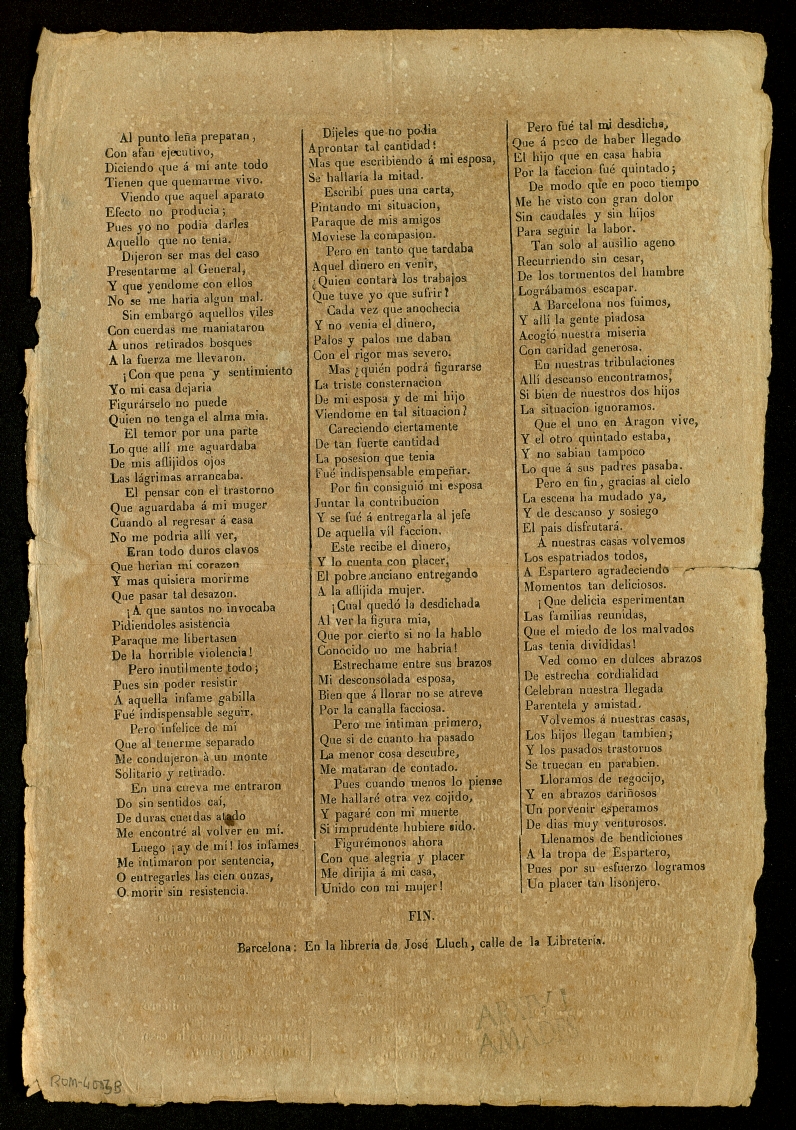 Al punto leña preparan,
Con afan ejecutivo,
Diciendo que á mí ante todo
Tienen que quemarme vivo.
Viendo que aquel aparato
Efecto no producia;
Pues yo no podia darles
Aquello que no tenia.
Dijeron ser mas del caso
Presentarme al General,
Y que yendome con ellos
No se me haria algun mal.
Sin embargo aquellos viles
Con cuerdas me maniataron
A unos retirados bosques
A la fuerza me llevaron.
¡Con que pena y sentimiento
Yo mi casa dejaria
Figurárselo no puede
Quien no tenga el alma mia.
El temor por una parte
Lo que allí me aguardaba
De mis aflijidos ojos
Las lágrimas arrancaba.
El pensar con el trastorno
Que aguardaba á mi muger
Cuando al regresar á casa
No me podria allí ver,
Eran todo duros clavos
Que herian mi corazon
Y mas quisiera morirme
Que pasar tal desazon.
¡A que santos no invocaba
Pidiendoles asistencia
Paraque me libertasen
De la horrible violencia!
Pero inutilmente todo;
Pues sin poder resistir
A aquella infame gabilla
Fué indispensable seguir.
Pero infelice de mí
Que al tenerme separado
Me condujeron à un monte
Solitario y retirado.
En una cueva me entraron
Do sin sentidos caí,
De duras cuerdas atado
Me encontré al volver en mí.
Luego ¡ay de mí! los infames
Me intimaron por sentencia,
O entregarles las cien onzas,
O morir sin resistencia.
Díjeles que no podia
Aprontar tal cantidad!
Mas que escribiendo á mi esposa,
Se hallaria la mitad.
Escribí pues una carta,
Pintando mi situacion,
Paraque de mis amigos
Moviese la compasion.
Pero en tanto que tardaba
Aquel dinero en venir,
¿Quien contarà los trabajos
Que tuve yo que sufrir?
Cada vez que anochecia
Y no venia el dinero,
Palos y palos me daban
Con el rigor mas severo.
Mas ¿quién podrá figurarse
La triste consternacion
De mi esposa y de mi hijo
Viendome en tal situacion?
Careciendo ciertamente
De tan fuerte cantidad
La posesion que tenia
Fué indispensable empeñar.
Por fin consiguió mi esposa
Juntar la contribucion
Y se fué á entregarla al jefe
De aquella vil faccion.
Este recibe el dinero,
Y lo cuenta con placer,
El pobre anciano entregando
A la aflijida mujer.
¡Cual quedó la desdichada
Al ver la figura mia,
Que por cierto si no la hablo
Conocido no me habria!
Estrechame entre sus brazos
Mi desconsolada esposa,
Bien que á llorar no se atreve
Por la canalla facciosa.
Pero me intiman primero,
Que si de cuanto ha pasado
La menor cosa descubre,
Me mataran de contado.
Pues cuando menos lo piense
Me hallaré otra vez cojido,
Y pagaré con mi muerte
Si imprudente hubiere sido.
Figurémonos ahora
Con que alegria y placer
Me dirijia á mi casa,
Unido con mi mujer!
Pero fué tal mi desdicha,
Que á poco de haber llegado
El hijo que en casa habia
Por la faccion fué quintado;
De modo que en poco tiempo
Me he visto con gran dolor
Sin caudales y sin hijos
Para seguir la labor.
Tan solo al ausilio ageno
Recurriendo sin cesar,
De los tormentos del hambre
Lográbamos escapar.
A Barcelona nos fuimos,
Y allí la gente piadosa
Acogió nuestra miseria
Con caridad generosa.
En nuestras tribulaciones
Allí descanso encontramos,
Si bien de nuestros dos hijos
La situacion ignoramos.
Que el uno en Aragon vive,
Y el otro quintado estaba,
Y no sabian tampoco
Lo que á sus padres pasaba.
Pero en fin, gracias al cielo
La escena ha mudado ya,
Y de descanso y sosiego
El pais disfrutará.
A nuestras casas volvemos
Los espatriados todos,
A Espartero agradeciendo
Momentos tan deliciosos.
¡Que delicia esperimentan
Las familias reunidas,
Que el miedo de los malvados
Las tenia divididas!
Ved como en dulces abrazos
De estrecha cordialidad
Celebran nuestra llegada
Parentela y amistad.
Volvemos á nuestras casas,
Los hijos llegan tambien;
Y los pasados trastornos
Se truecan en parabien.
Lloramos de regocijo,
Y en abrazos cariñosos
Un porvenir esperamos
De dias muy venturosos.
Llenamos de bendiciones
A la tropa de Espartero,
Pues por su esfuerzo logramos
Un placer tan lisonjero.
FIN.
Barcelona: En la librería de José Lluch, calle de la Libretería.
ARXIU
ROM-4003B